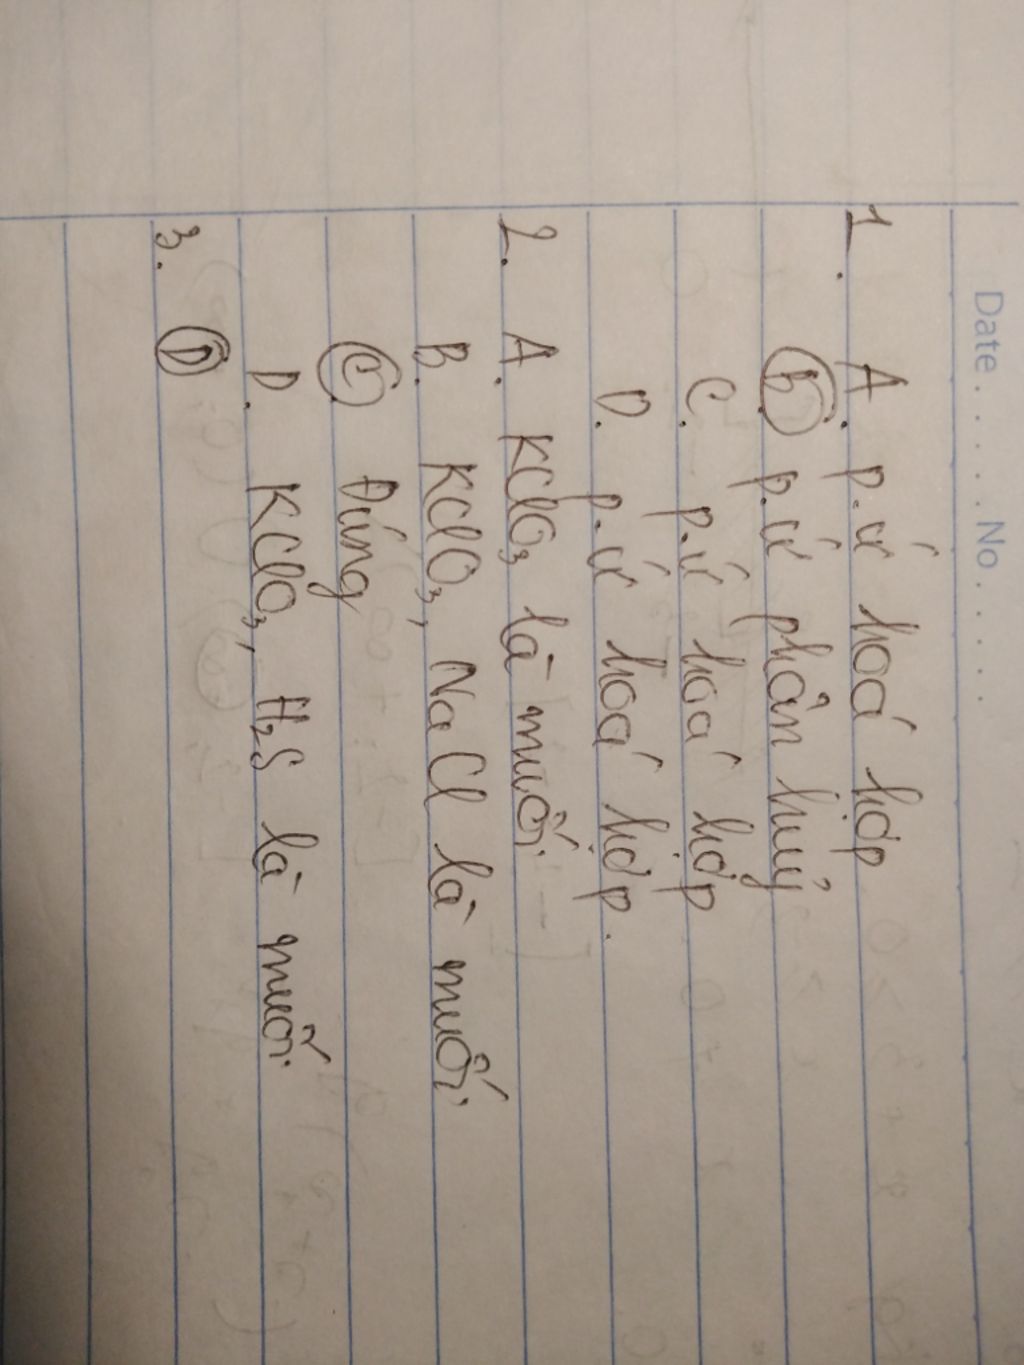 Date.....No.....
1. A. p.ứ hoá hợp
B. p.ứ phân huỷ
C. p.ứ hoá hợp
D. p.ứ hoá hợp.
2. A. KClO₃ là muối.
B. KClO₃, NaCl là muối.
C. Đúng
D. KClO₃, H₂S là muối.
3. D